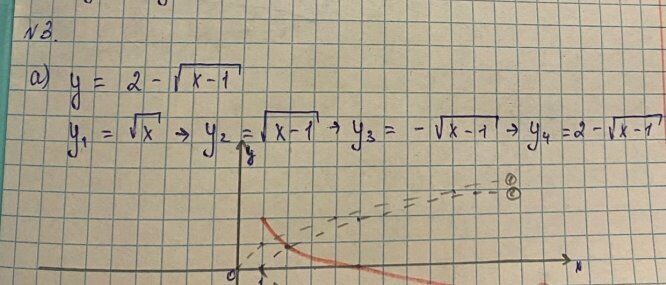 №3.
а) y = 2 - √(x-1)
y₁ = √x → y₂ = √(x-1) → y₃ = -√(x-1) → y₄ = 2-√(x-1)
y
①
②
0
1
x